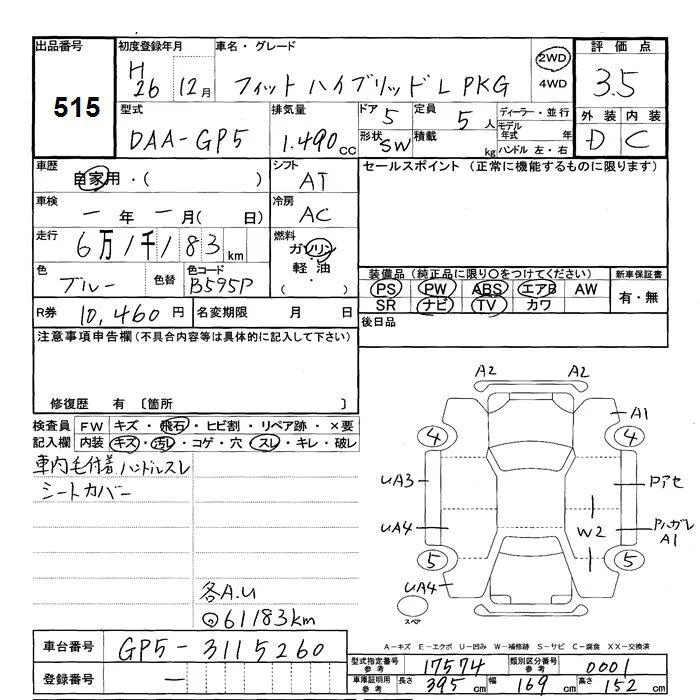 出品番号
515
初度登録年月
H26 12月
車名・グレード
フィット ハイブリッド L PKG
2WD
4WD
評価点
3.5
外装 内装
D C
型式
DAA-GP5
排気量
1.490cc
ドア 5
定員 5人
形状 SW
積載 kg
ディーラー・並行
モデル年式 年
ハンドル 左・右
車歴
自家用・( )
シフト
AT
セールスポイント (正常に機能するものに限ります)
車検
- 年 - 月( 日)
冷房
AC
走行
6万1千183km
燃料
ガソリン
・
軽油
( ・ )
色
ブルー
色替
色コード
B595P
装備品 (純正品に限り〇をつけてください)
PS PW ABS エアB AW
SR ナビ TV カワ
新車保証書
有・無
R券 10,460円
名変期限 月 日
後日品
注意事項申告欄 (不具合内容等は具体的に記入して下さい)
修復歴 有 〔箇所 〕
検査員記入欄
FW キズ・飛石・ヒビ割・リペア跡・×要
内装 キズ・汚レ・コゲ・穴・スレ・キレ・破レ
車内毛付着 ハンドルスレ
シートカバー
各A.U
◎61183km
A2 A2
A1
4 4
UA3
Pアセ
UA4
W2
PハガレA1
5 5
UA4
スペア
A-キズ E-エクボ U-凹み W-補修跡 S-サビ C-腐食 XX-交換済
車台番号
GP5-3115260
登録番号
-
型式指定番号 参考 17574
類別区分番号 参考 0001
車庫証明用 参考 長さ 395cm 幅 169cm 高さ 152cm